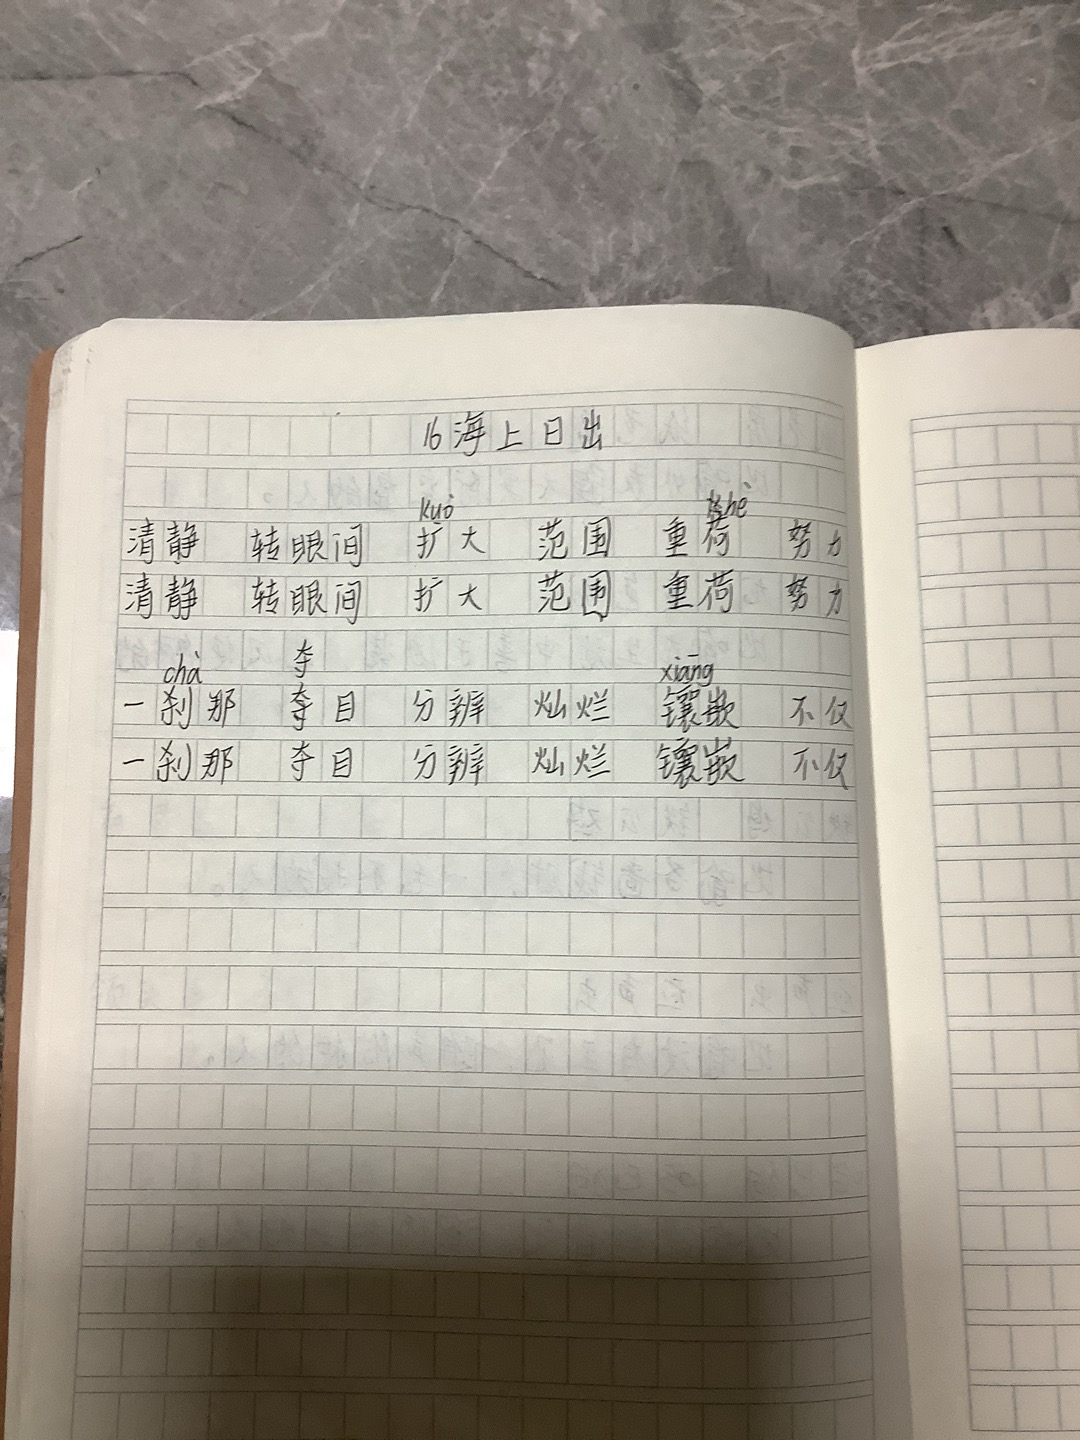 16海上日出
kuò hè
清静 转眼间 扩大 范围 重荷 努力
清静 转眼间 扩大 范围 重荷 努力
chà 夺 xiāng
一刹那 夺目 分辨 灿烂 镶嵌 不仅
一刹那 夺目 分辨 灿烂 镶嵌 不仅